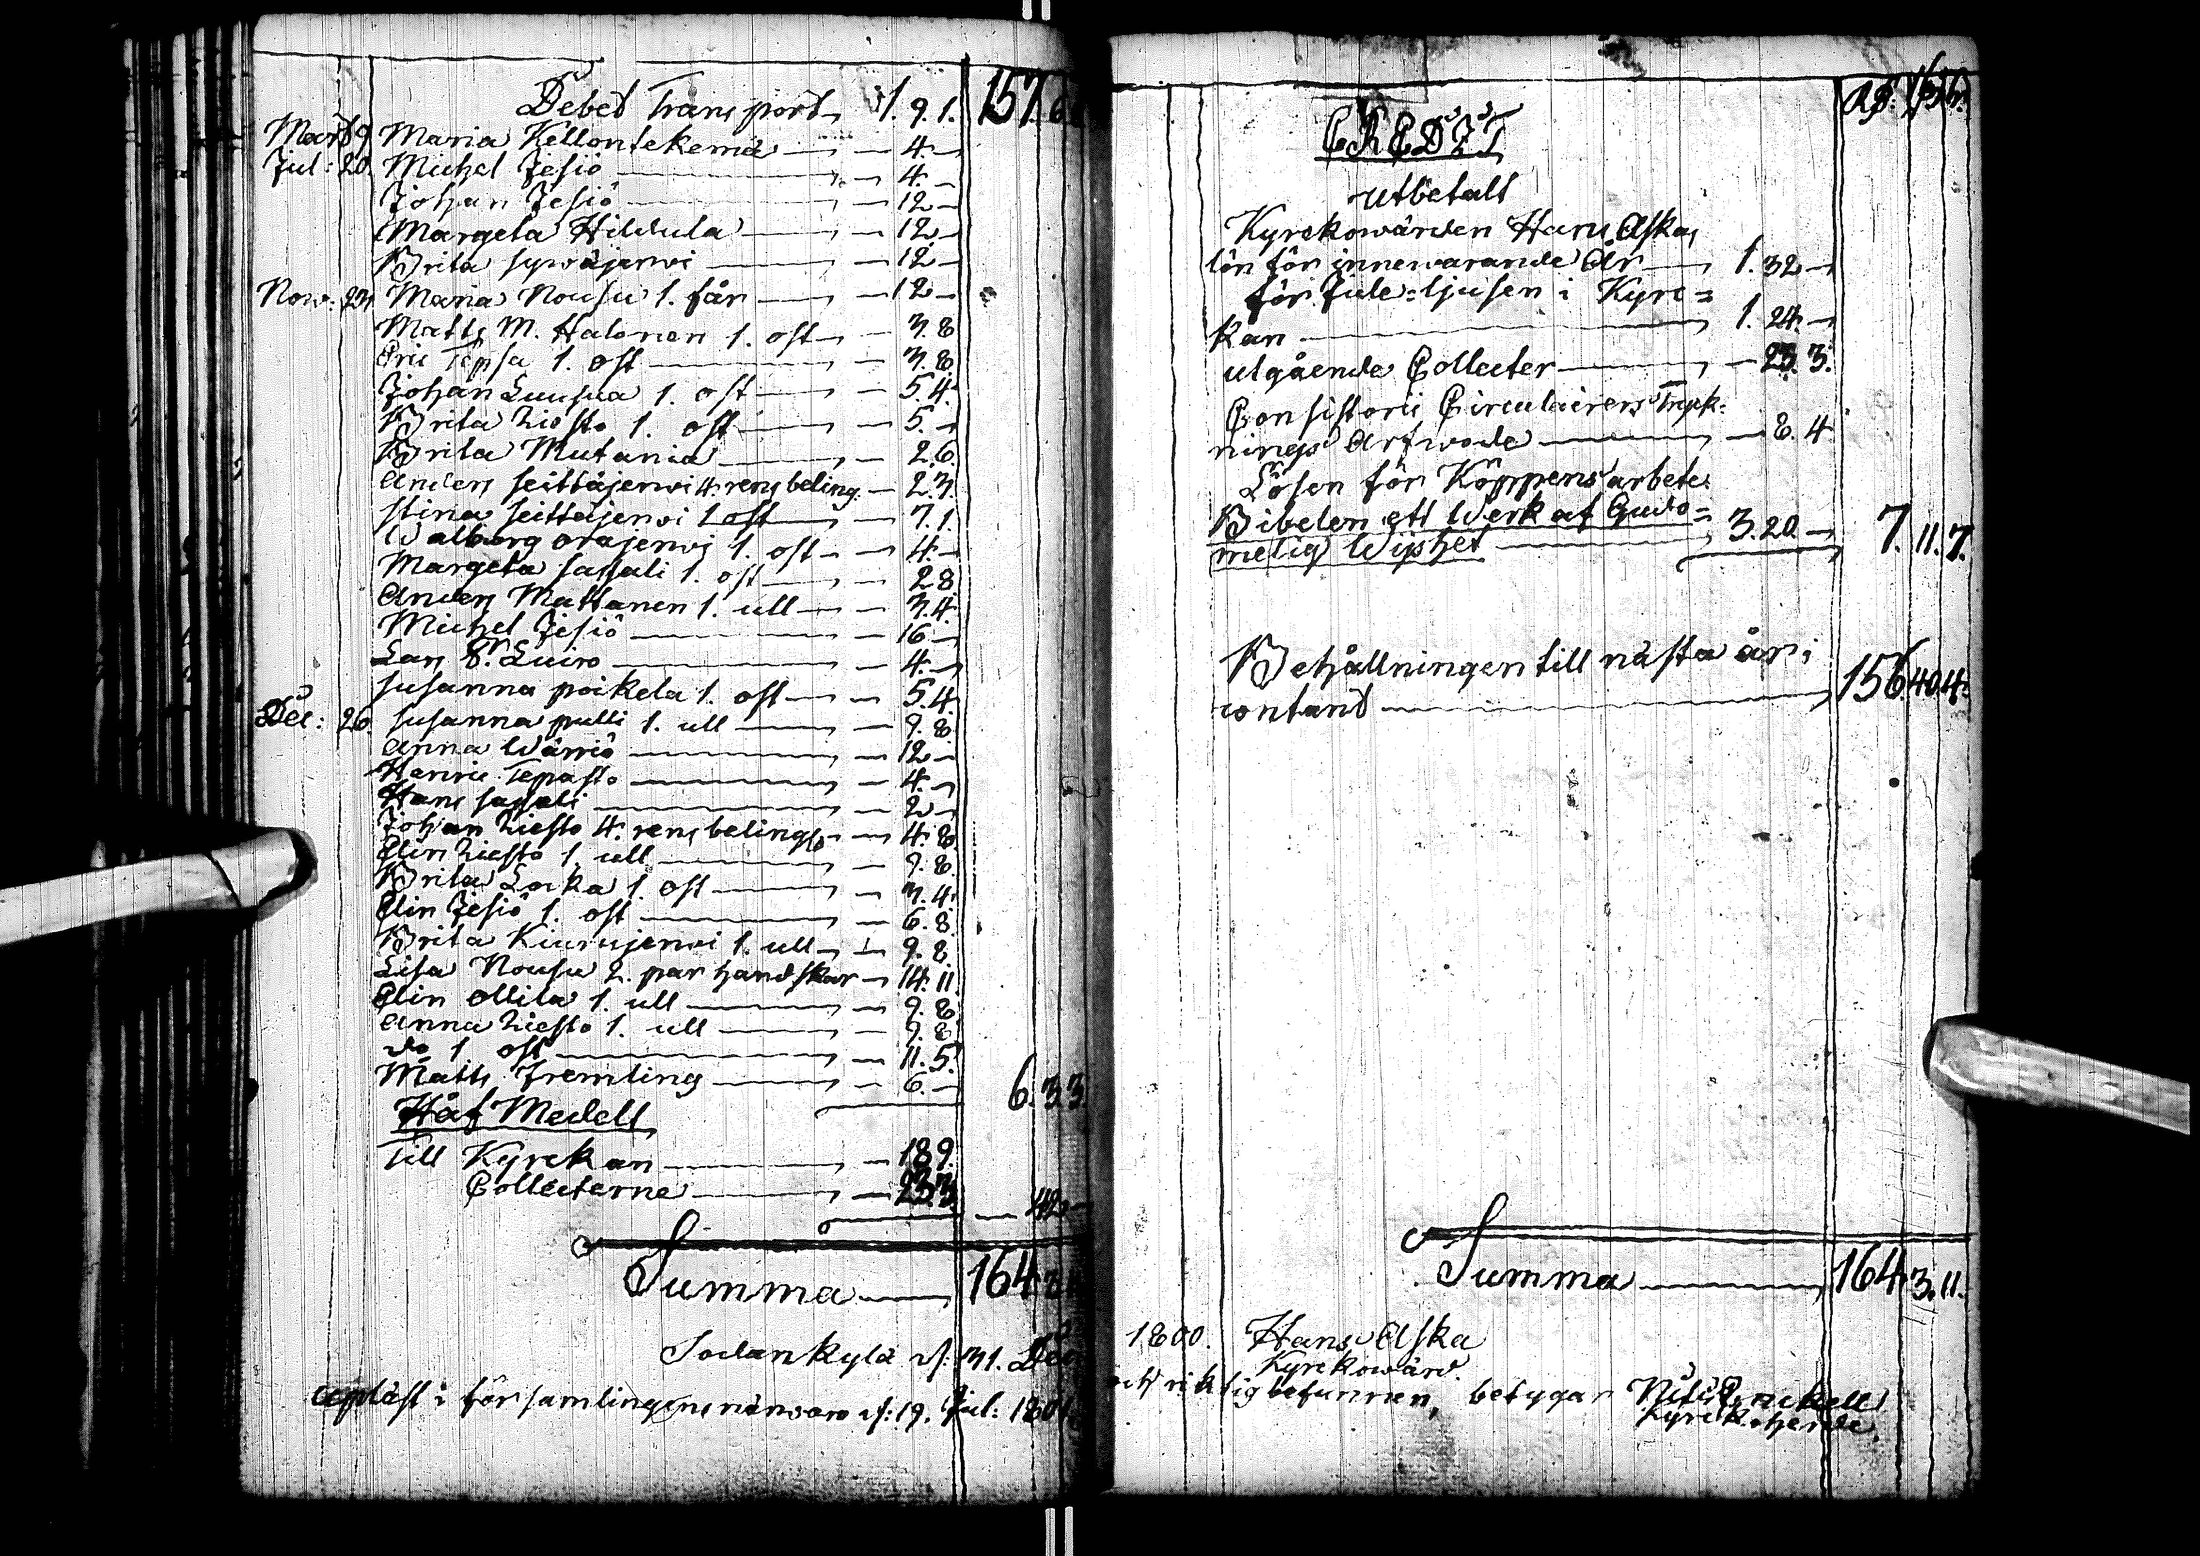 Debet Transport 1. 9. 1. 157. 6
Mart. 9 Maria Kellontekemä — 4. —
Jul: 20. Michel Jesiö — 4. —
Johan Jesiö — 12 —
Margeta Hildula — 12 —
Brita sywäjerwi — 12 —
Now: 23. Maria Nousu 1. får — 12 —
Matts M. Halonen 1. ost — 3. 8
Eric Tepsa 1. ost — 3. 8.
Johan Luusua 1. ost — 5. 4.
Brita Liesto 1. ost — 5. —
Brita Mutania — 2. 6.
Anders seittäjerwi 4. rens beling. — 2. 3.
stina seittäjerwi 1 ost — 7. 1.
Walborg orajerwi 1. ost — 4. —
Margeta sassali 1. ost — 2 8
Anders Mattanen 1. ull — 3. 4.
Michel Jesiö — 16 —
Lars Luiro — 4. —
susanna poikela 1. ost — 5. 4.
Dec: 26. susanna pulli 1. ull — 9. 8.
Anna Wärriö — 12 —
Tepasto — 4. —
Hans sassali — 2 —
Johan Liesto 4. rens belingar — 4. 8.
Elin Liesto 1. ull — 9. 8.
Brita Loka 1. ost — 3. 4.
Elin Jesiö 1. ost — 6. 8.
Brita Kiurujerwi 1. ull — 9. 8.
Lisa Nousu 2. par handskar — 14. 11.
Elin ollila 1. ull — 9. 8.
Anna Liesto 1. ull — 9. 8.
do 1 ost — 11. 5.
Matts Fremling — 6. — 6. 33.
Håf Medell
Till Kyrckan — 18 9.
Collecterne — 23. 3 — 42 —
Summa — 164. 3.
Sodankylä d: 31. Dec:
Upläst i församlingens närvaro d: 19. Jul: 1801.
CREDIT
utbetalt
Kyrckowärden Hans Aska
lön för innewarande År — 1. 32 —
för Jule-ljusen i Kyrc=
kan — 1. 24. —
utgående Collecter — 23. 3.
Consistorii Circulairers Tryck-
nings Arfwode — 8. 4.
Lösen för Köppens arbete
Bibelen ett Werk af Gudo=
melig Wishet — 3. 20 — 7. 11. 7.
Behållningen till nästa år i
contant — 156. 40. 4.
Summa — 164. 3. 11.
1800. Hans Aska
Kyrckowärd.
och riktig befunnen, betygar
Kyrckoherde.